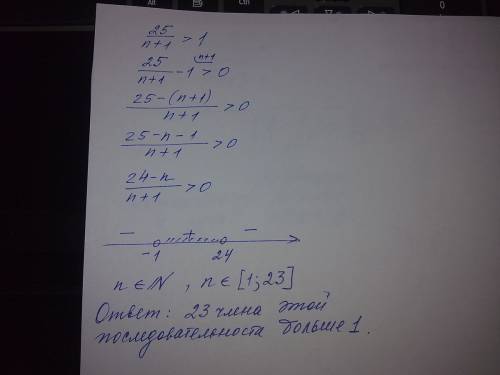 Alt
Ctrl
0
25/(n+1) > 1
25/(n+1) - 1 > 0 (n+1
(25-(n+1))/(n+1) > 0
(25-n-1)/(n+1) > 0
(24-n)/(n+1) > 0
− + −
-1 24
n ∈ N , n ∈ [1; 23]
Ответ: 23 члена этой
последовательноста больше 1.